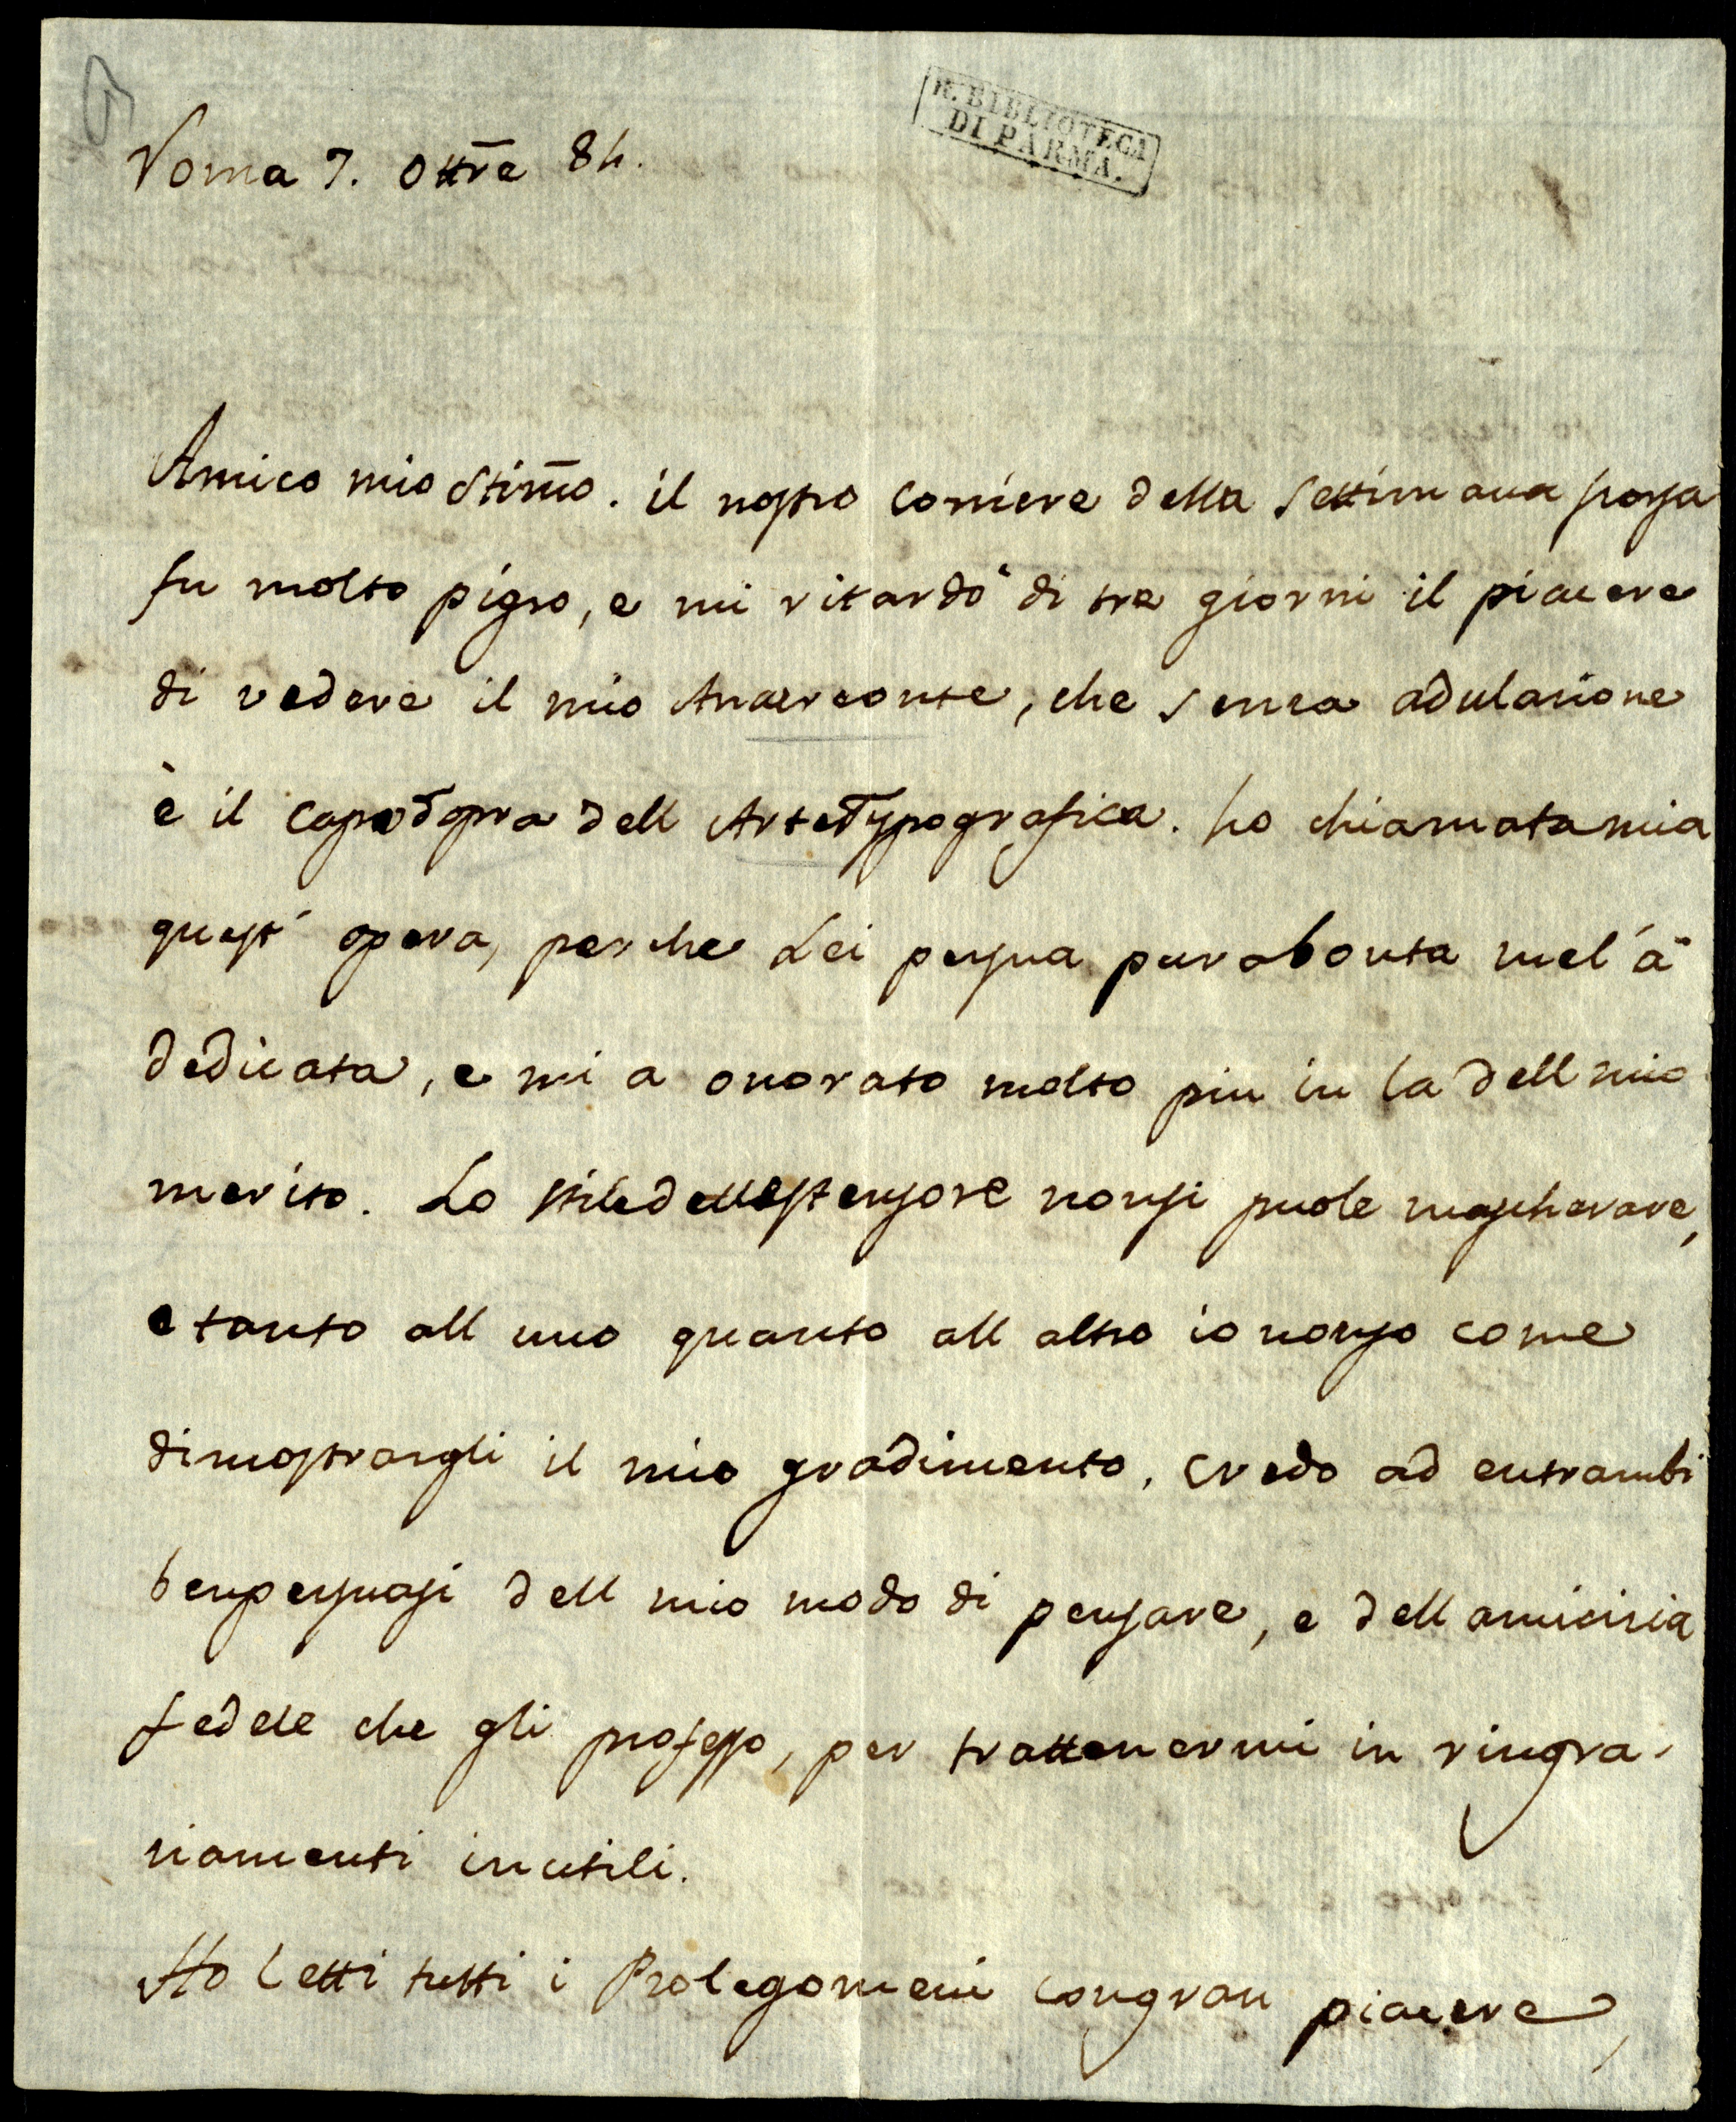 R. BIBLIOTECA
DI PARMA.
Roma 7. Ottre 84.
Amico mio Stimo. il nostro corriere della Settimana scorsa
fu molto pigro, e mi ritardò di tre giorni il piacere
di vedere il mio Anacreonte, che senza adulazione
è il capo d'opra dell Arte Typografica. ho chiamata mia
quest' opera, perche Lei per sua pura bonta mel'à
dedicata, e mi a onorato molto piu in la dell mio
merito. Lo stile dell estensore non si puole mascherare,
e tanto all uno quanto all altro io non so come
dimostrargli il mio gradimento, credo ad entrambi
ben persuasi dell mio modo di pensare, e dell amicizia
fedele che gli professo, per trattenermi in ringra-
ziamenti inutili.
Ho Letti tutti i Prolegomeni con gran piacere,